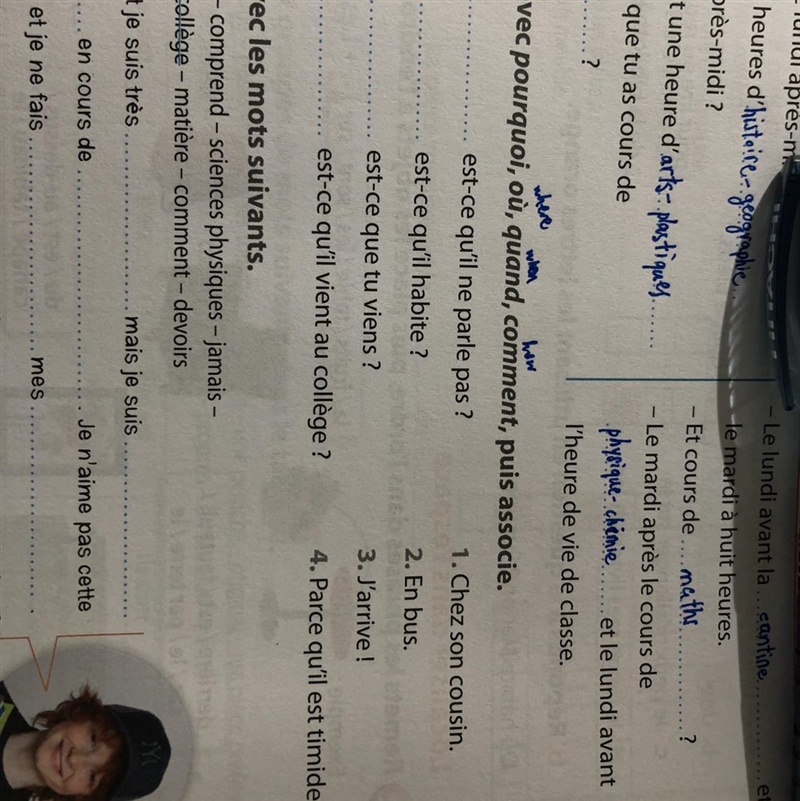 lundi après-m
heures d'histoire-géographie
près-midi ?
t une heure d'arts-plastiques
que tu as cours de
?
– Le lundi avant la cantine et
le mardi à huit heures.
– Et cours de maths ?
– Le mardi après le cours de
physique-chimie et le lundi avant
l'heure de vie de classe.
where when how
vec pourquoi, où, quand, comment, puis associe.
est-ce qu'il ne parle pas ? 1. Chez son cousin.
est-ce qu'il habite ? 2. En bus.
est-ce que tu viens ? 3. J'arrive !
est-ce qu'il vient au collège ? 4. Parce qu'il est timide
vec les mots suivants.
– comprend – sciences physiques – jamais –
collège – matière – comment – devoirs
t je suis très mais je suis
en cours de . Je n'aime pas cette
et je ne fais mes .